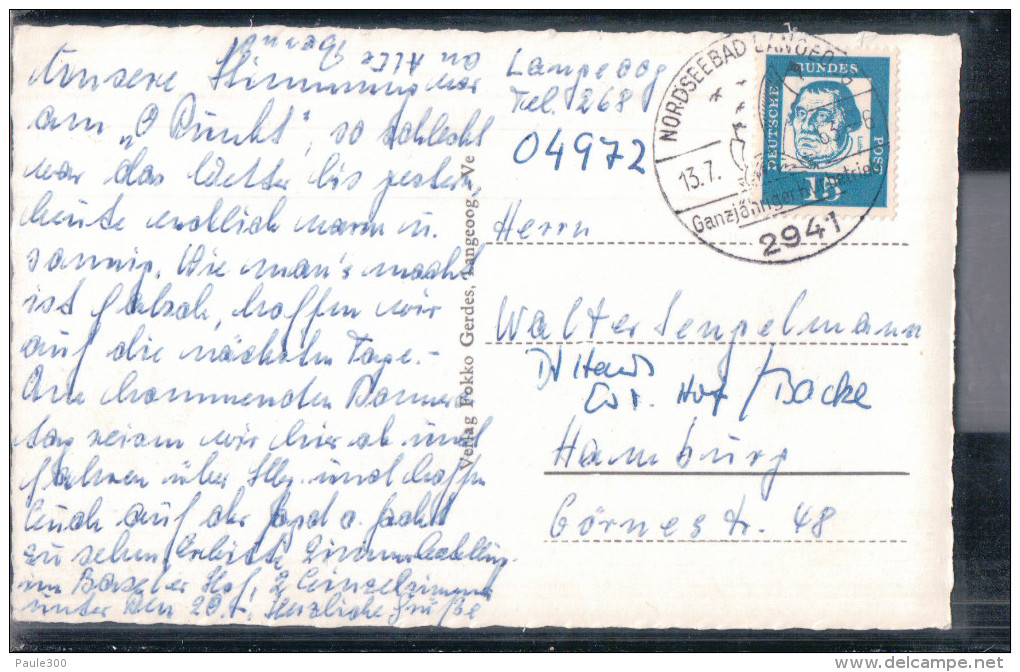 Unsere Stimmung war
am „0 Punkt“, so schlecht
war das Wetter bis gestern,
heute endlich warm u.
sonnig. Wie man's macht
ist falsch, hoffen wir
auf die nächsten Tage.-
Am kommenden Donners
tag reisen wir hier ab und
fahren über Hbg. und hoffen
Euch auf der
zu sehen, erbitte Zimmerbestellung
im Baseler Hof, 2 Einzelzimmer
unter den 20.7. Herzliche Grüße
an Alle
Verlag Fokko Gerdes, Langeoog, Ve
Langeoog
Tel. 268
04972
NORDSEEBAD LANGEO
13.7.
Ganzjähriger
2941
DEUTSCHE
BUNDES
POST
15
Herrn
Walter Sengelmann
Hamburg
48
Paule300